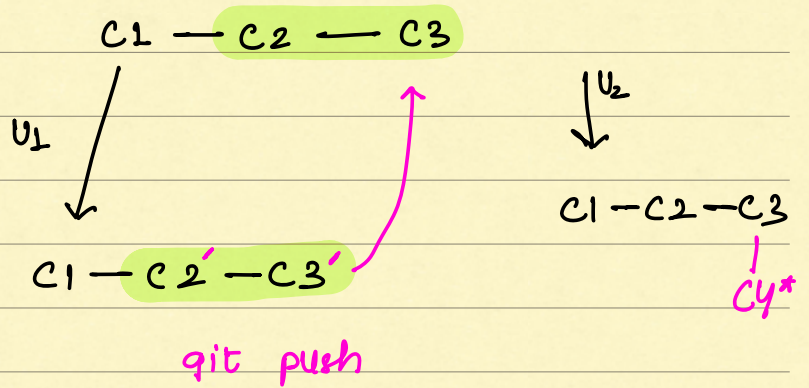 C1 — C2 — C3
U1
U2
C1 — C2 — C3
C4*
C1 — C2′ — C3′
git push